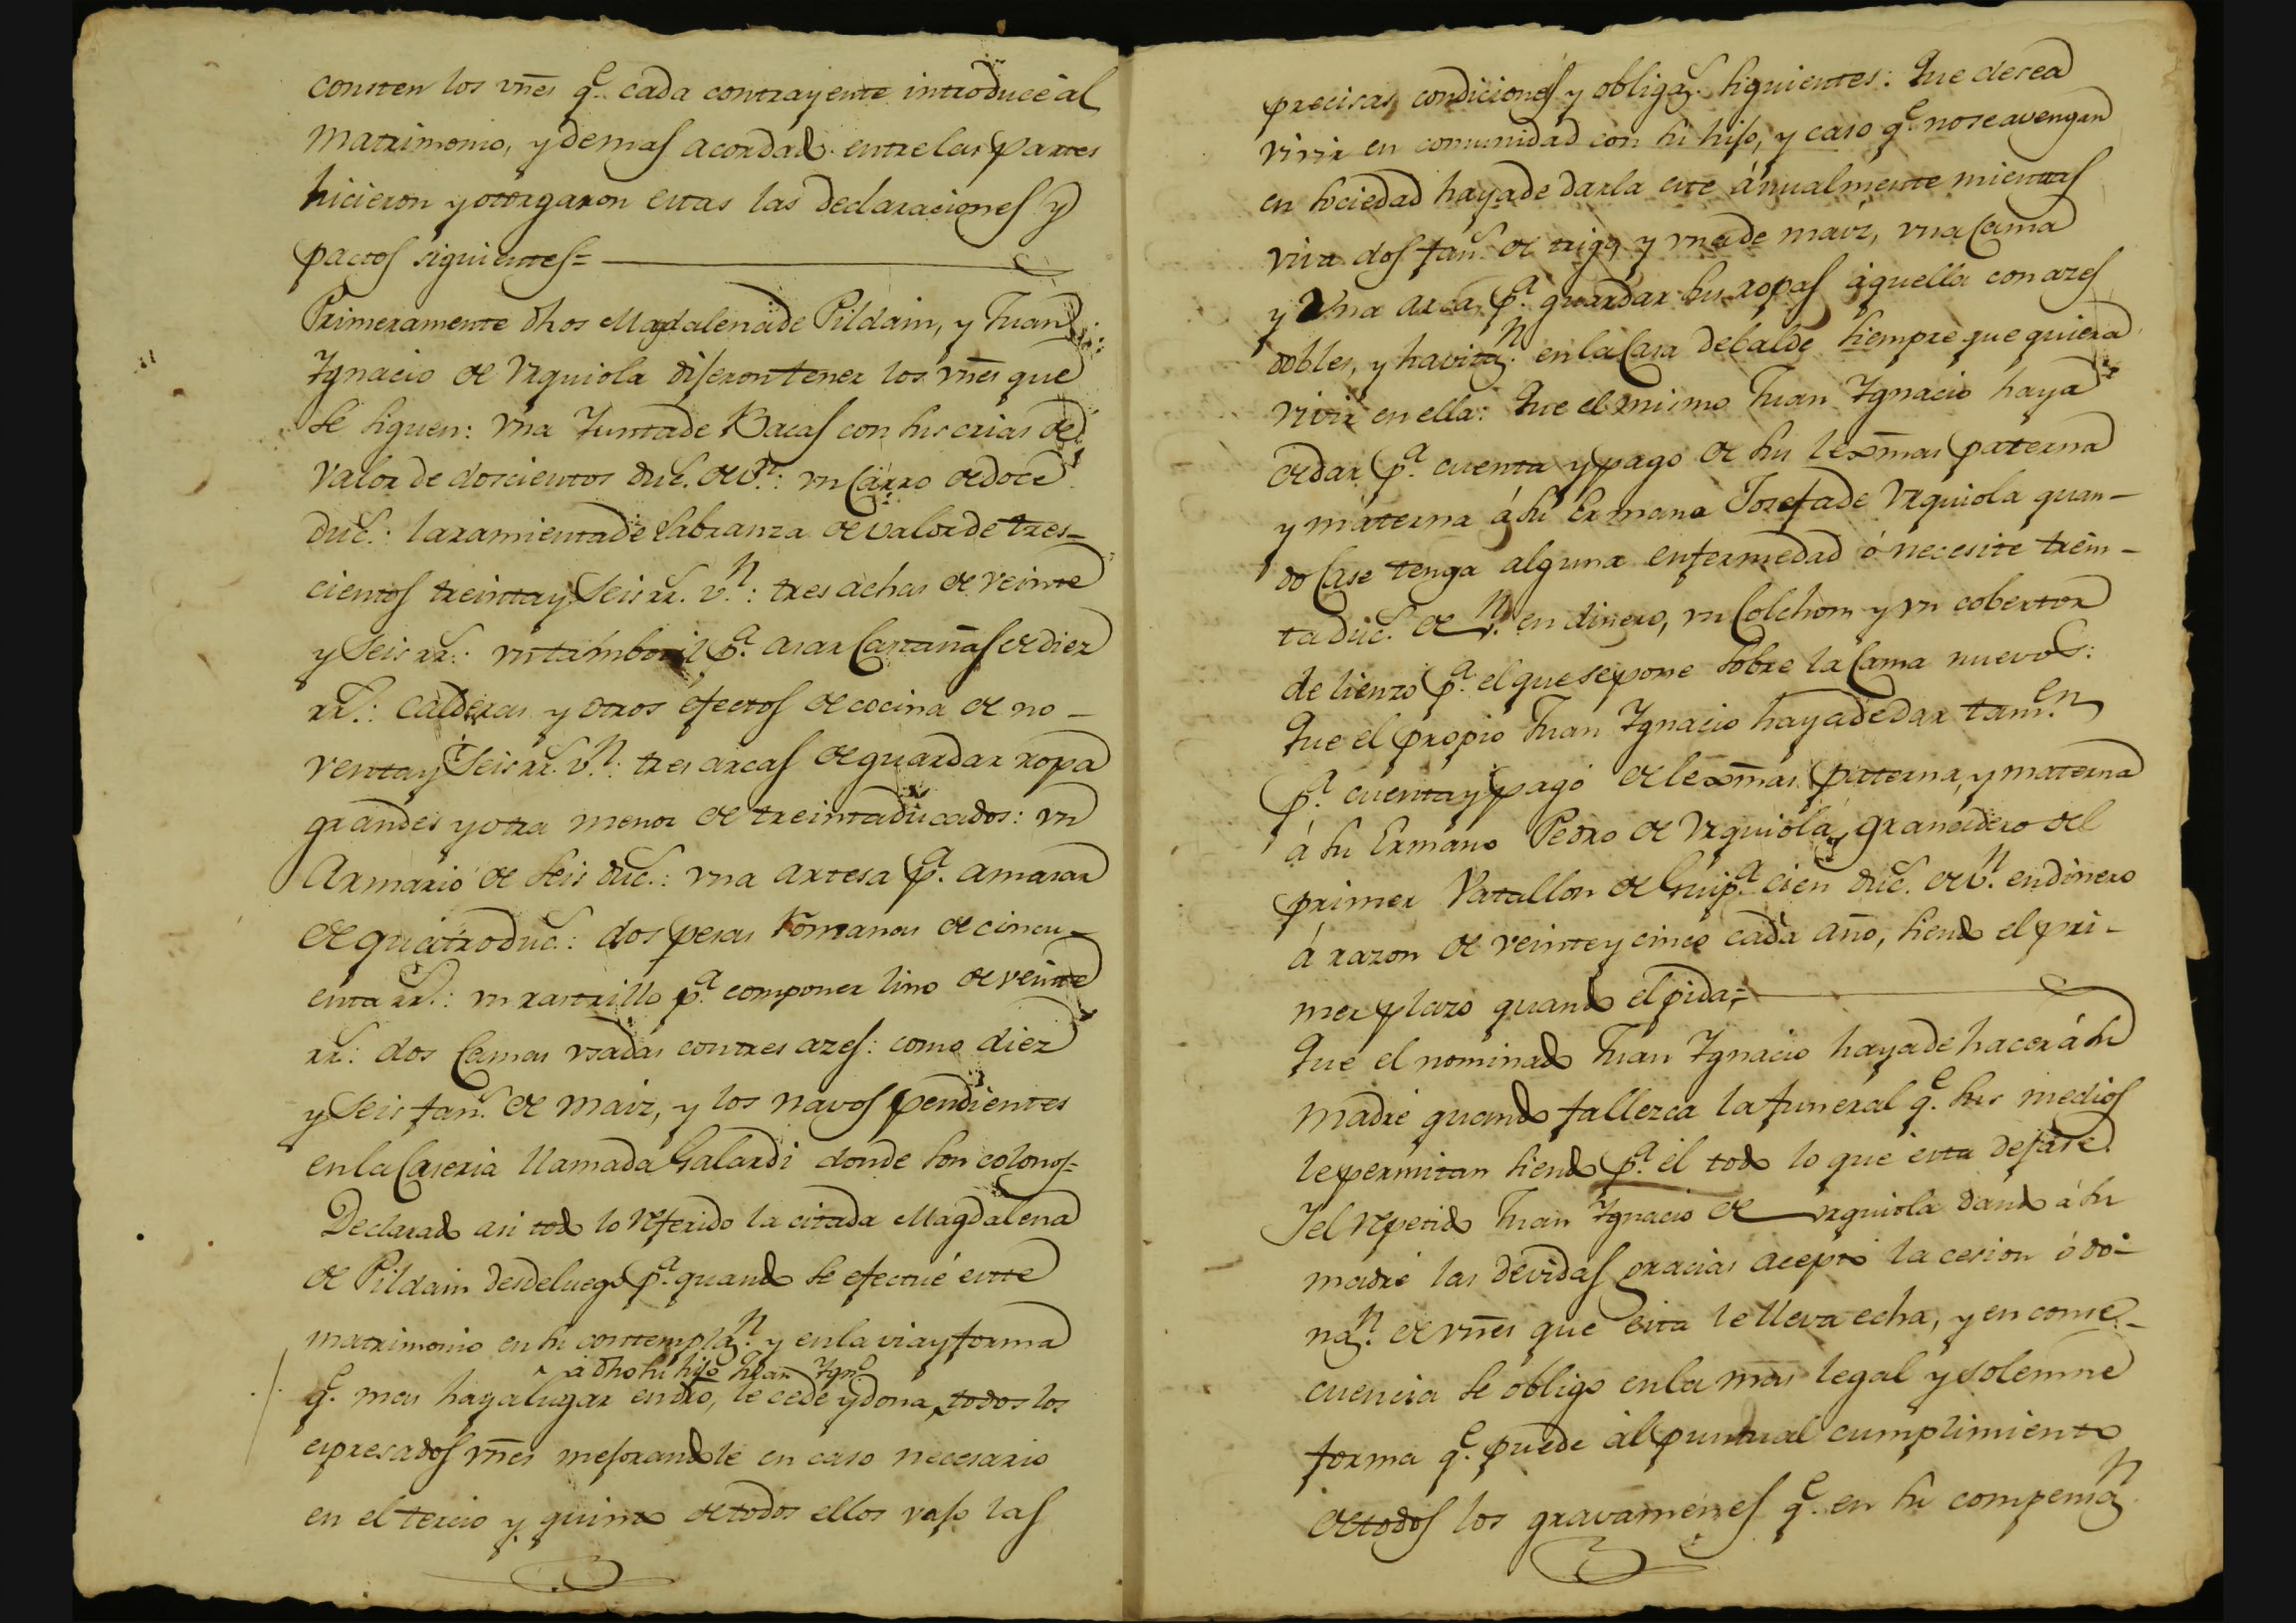 consten los vñes q.e cada contrayente introduce al
Matrimonio, y demas acordado entre las partes
hicieron y otorgaron estas las declaraciones y
pactos siguientes=
Primeramente dhos Magdalena de Pildain, y Juan
Ygnacio de Vrquiola dijeron tener los vñes que
se siguen: vna Junta de Bacas con sus crias de
valor de doscientos duc.s de v.n: vn Carro de doce
duc.s: laramienta de Labranza de valor de tres-
cientos treinta y Seis rr.s v.n: tres achas de veinte
y Seis rr.s: vn tamboril p.a asar Castañas de diez
rr.s: calderas y otros efectos de cocina de no-
venta y Seis rr.s v.n: tres arcas de guardar ropa
grandes y otra menor de treinta ducados: vn
Armario de seis duc.s: vna artesa p.a amasar
de quatro duc.s: dos pesas Romanas de cincu-
enta rr.s: vn rastrillo p.a componer lino de veinte
rr.s: dos Camas vsadas con tres azes: como diez
y Seis fan.s de maiz, y los navos pendientes
en la Caseria llamada Galardi donde son colonos=
Declarado asi todo lo referido la citada Magdalena
de Pildain desde luego p.a quando se efectué este
matrimonio en su contemplaz.n y en la via y forma
à dho su hijo Juan Ygn.o
q.e mas haya lugar en dro, le cede y dona, todos los
espresados vñes mejorandole en caso necesario
en el tercio y quinto de todos ellos vajo las
precisas condiciones y obligaz.s siguientes: Que desea
vivir en comunidad con su hijo, y caso q.e no se avengan
en sociedad haya de darla este ánualmente mientras
viva dos fan.s de trigo, y vna de maiz, vna Cama
y Vna arca p.a guardar sus ropas àquella con azes
dobles, y havitaz.n en la Casa de balde siempre que quiera
vivir en ella: Que el mismo Juan Ygnacio haya
de dar p.a cuenta y pago de sus lexmas paterna
y materna á su Ermana Josefa de Vrquiola quan-
do Case tenga alguna enfermedad ó necesite trein-
ta duc.s de v.n en dinero, vn Colchon y vn cobertor
de lienzo p.a el que se pone sobre la Cama nuevos:
Que el propio Juan Ygnacio haya de dar tam.en
p.a cuenta y pago de lexmas paterna, y materna
á su Ermano Pedro de Vrquiola, granadero del
primer Vatallon de Guip.a cien duc.s de v.n en dinero
á razon de veinte y cinco cada año, siendo el pri-
mer plazo quando el pida;=
Que el nominado Juan Ygnacio haya de hacer á su
Madre quando fallezca la funeral q.e sus medios
le permitan siendo p.a él todo lo que esta dejare.
Y el repetido Juan Ygnacio de Vrquiola dando á su
madre las devidas gracias aceptó la cesion ó do-
naz.n de vñes que esta le lleva echa, y en conse-
cuencia se obligo en la mas legal y solemne
forma q.e puede al puntual cumplimiento
de todos los gravamenes q.e en su compensaz.n